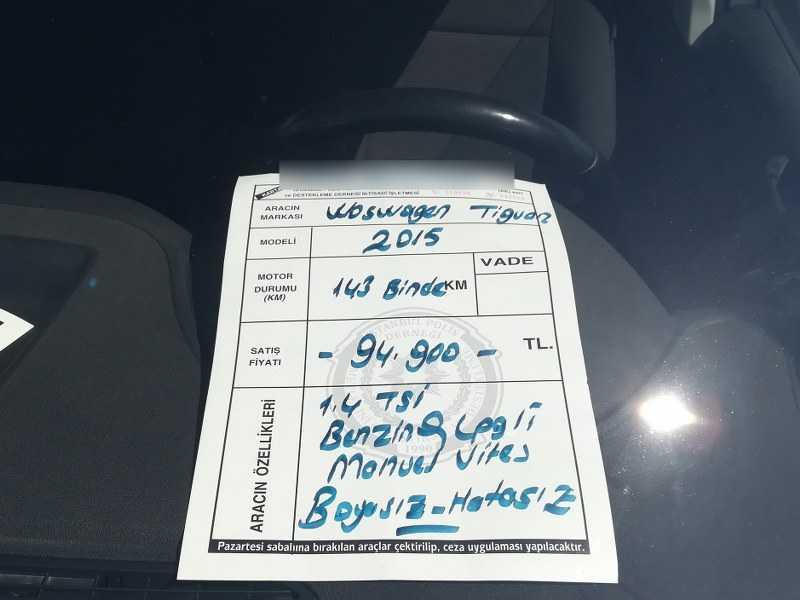 ve DESTEKLEME DERNEĞİ İKTİSADİ İŞLETMESİ
ARACIN MARKASI Woswagen Tiguan
MODELİ 2015
MOTOR DURUMU (KM) 143 Binde KM VADE
SATIŞ FİYATI - 94.900 - TL.
İSTANBUL POLİS
DERNEĞİ
1990
ARACIN ÖZELLİKLERİ
1.4 TSİ
Benzin & Lpgli
Manuel Vites
Boyasız - Hatasız
Pazartesi sabahına bırakılan araçlar çektirilip, ceza uygulaması yapılacaktır.